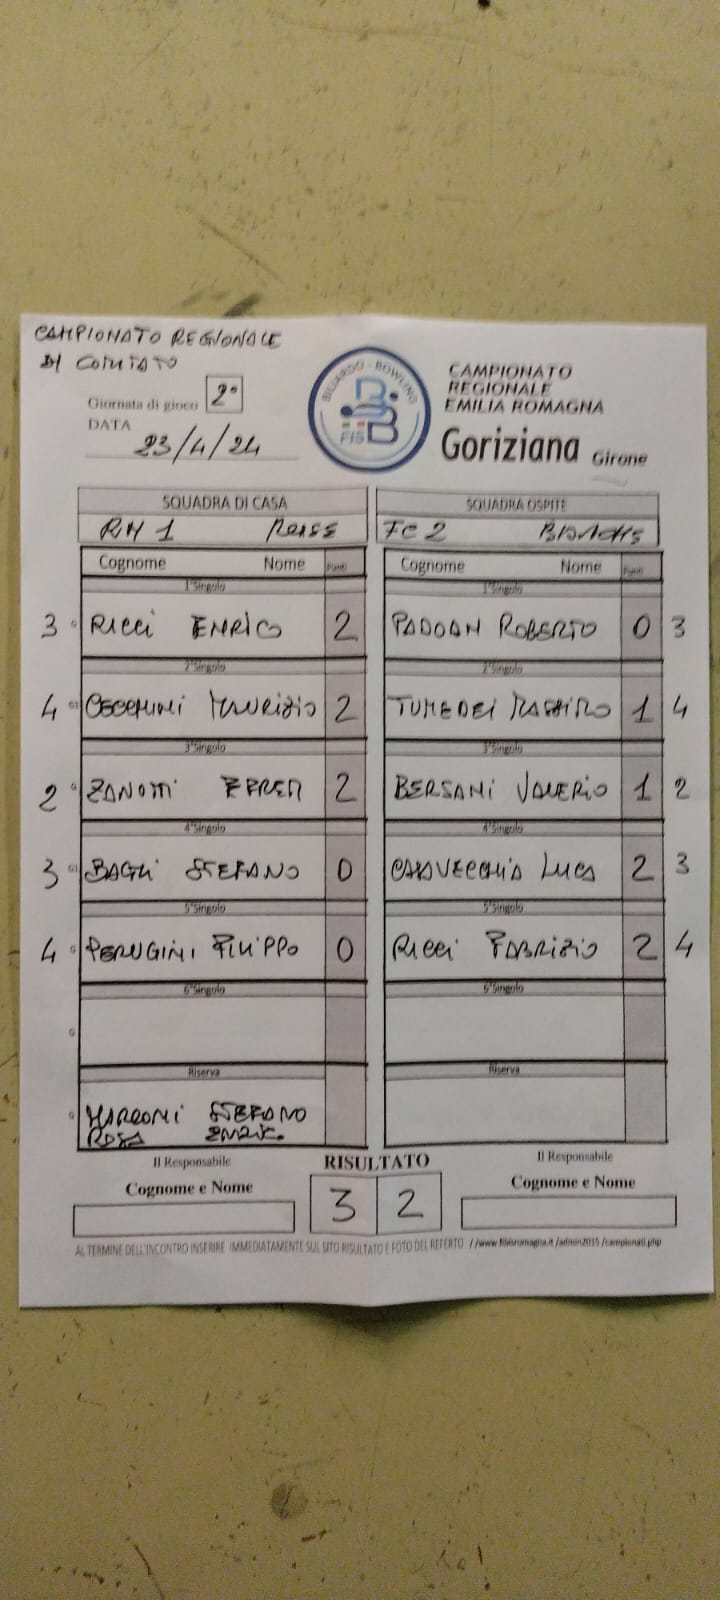 CAMPIONATO REGIONALE
DI COMITATO
Giornata di gioco 2°
DATA 23/4/24
BILIARDO - BOWLING
FISBB
CAMPIONATO
REGIONALE
EMILIA ROMAGNA
Goriziana Girone
SQUADRA DI CASA SQUADRA OSPITE
RN 1 FC 2
Cognome Nome Punti Cognome Nome Punti
1°Singolo 1°Singolo
3 RICCI ENRICO 2 PADOAN ROBERTO 0 3
2°Singolo 2°Singolo
4 CECCHINI MAURIZIO 2 TUMEDEI MASSIMO 1 4
3°Singolo 3°Singolo
2 ZANOTTI EFREM 2 BERSANI VALERIO 1 2
4°Singolo 4°Singolo
3 BAGLI STEFANO 0 CASAVECCHIA LUCA 2 3
5°Singolo 5°Singolo
4 PERUGINI FILIPPO 0 RICCI FABRIZIO 2 4
6°Singolo 6°Singolo
Riserva Riserva
STEFANO
ROSA ENRICO
Il Responsabile RISULTATO Il Responsabile
Cognome e Nome 3 2 Cognome e Nome
AL TERMINE DELL'INCONTRO INSERIRE IMMEDIATAMENTE SUL SITO RISULTATO E FOTO DEL REFERTO //www.fibisromagna.it/admin2015/campionati.php